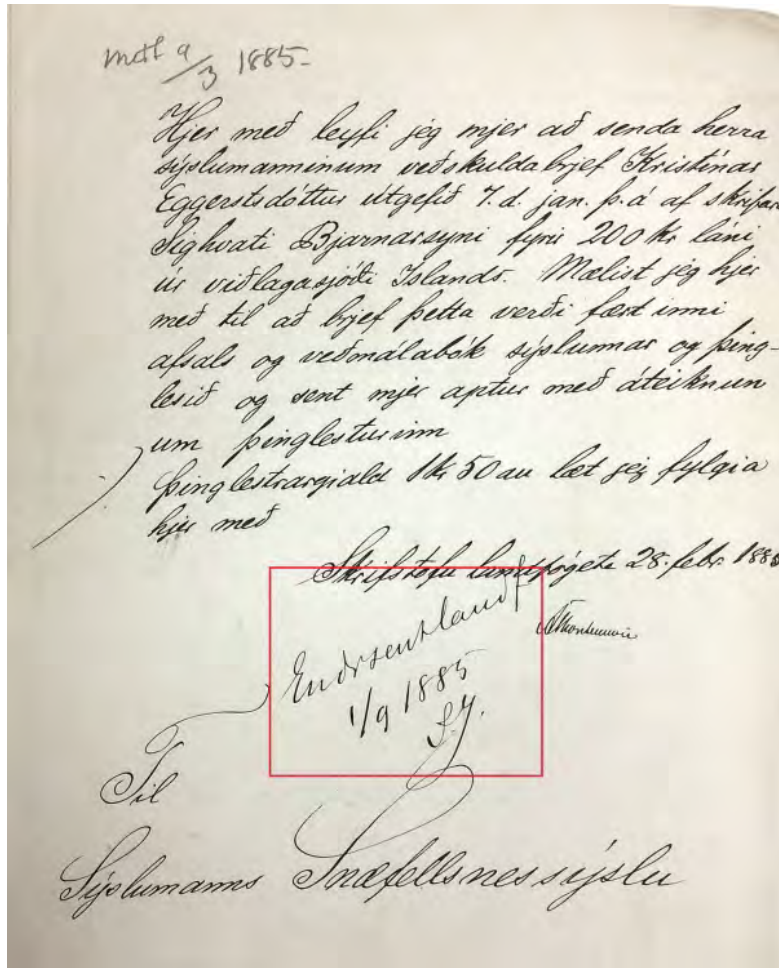 mótt 9/3 1885-
Hjer með leyfi jeg mjer að senda herra
sýslumanninum veðskuldabrjef Kristínar
Eggertsdóttur útgefið 7. d. jan. þ.á af skrifara
Sighvati Bjarnarsyni fyrir 200 kr láni
úr viðlagasjóði Islands. Mælist jeg hjer
með til að brjef þetta verði fært inni
afsals og veðmálabók sýslunnar og þing-
lesið og sent mjer aptur með áteiknun
um þinglesturinn
þinglestrargiald 1 kr 50 au læt jeg fylgia
hjer með
Skrifstofu landfógeta 28. febr. 1885
Endrsent landf
1/9 1885
S.J.
Til
Sýslumanns Snæfellsnessýslu